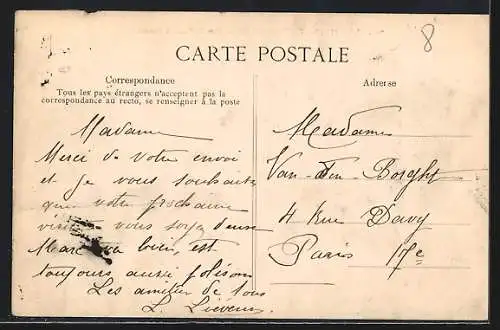 8
CARTE POSTALE
Correspondance
Tous les pays étrangers n'acceptent pas la
correspondance au recto, se renseigner à la poste
Adresse
Madame
Merci de votre envoi
et je vous souhaite
que votre prochaine
vous
Marc va bien, est
toujours aussi polisson
Les amitiés de tous
L.
Madame
Van-den Borght
4 Rue Davy
Paris 17e